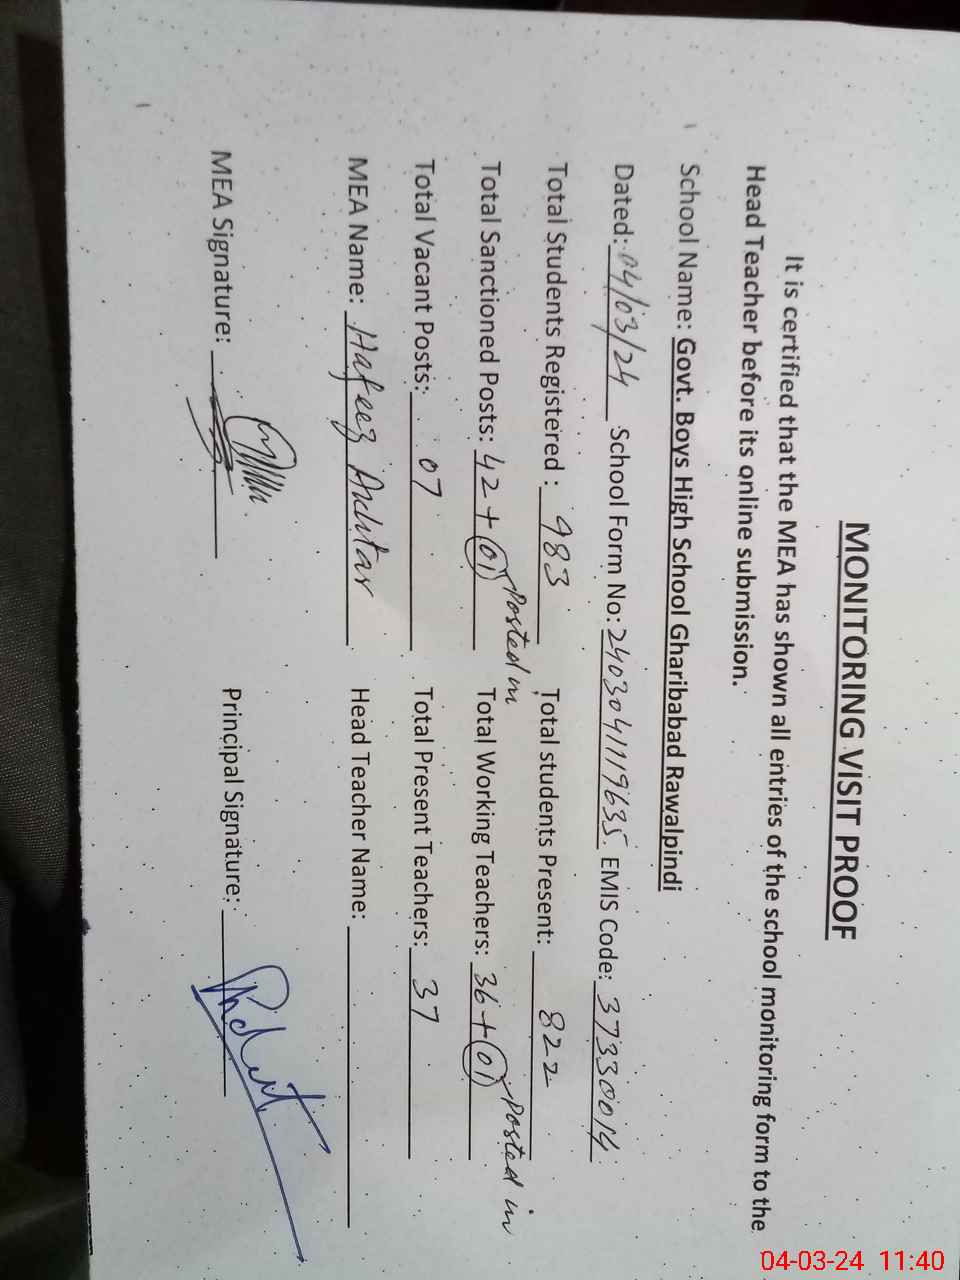 MONITORING VISIT PROOF
It is certified that the MEA has shown all entries of the school monitoring form to the
Head Teacher before its online submission.
School Name: Govt. Boys High School Gharibabad Rawalpindi
Dated: 04/03/24 School Form No: 2403041119635. EMIS Code: 37330014
Total Students Registered : 983 Total students Present: 822
Total Sanctioned Posts: 42+01 Posted in Total Working Teachers: 36+01 Posted in
Total Vacant Posts: 07 Total Present Teachers: 37
MEA Name: Hafeez Akhtar Head Teacher Name:
MEA Signature: Principal Signature:
04-03-24 11:40